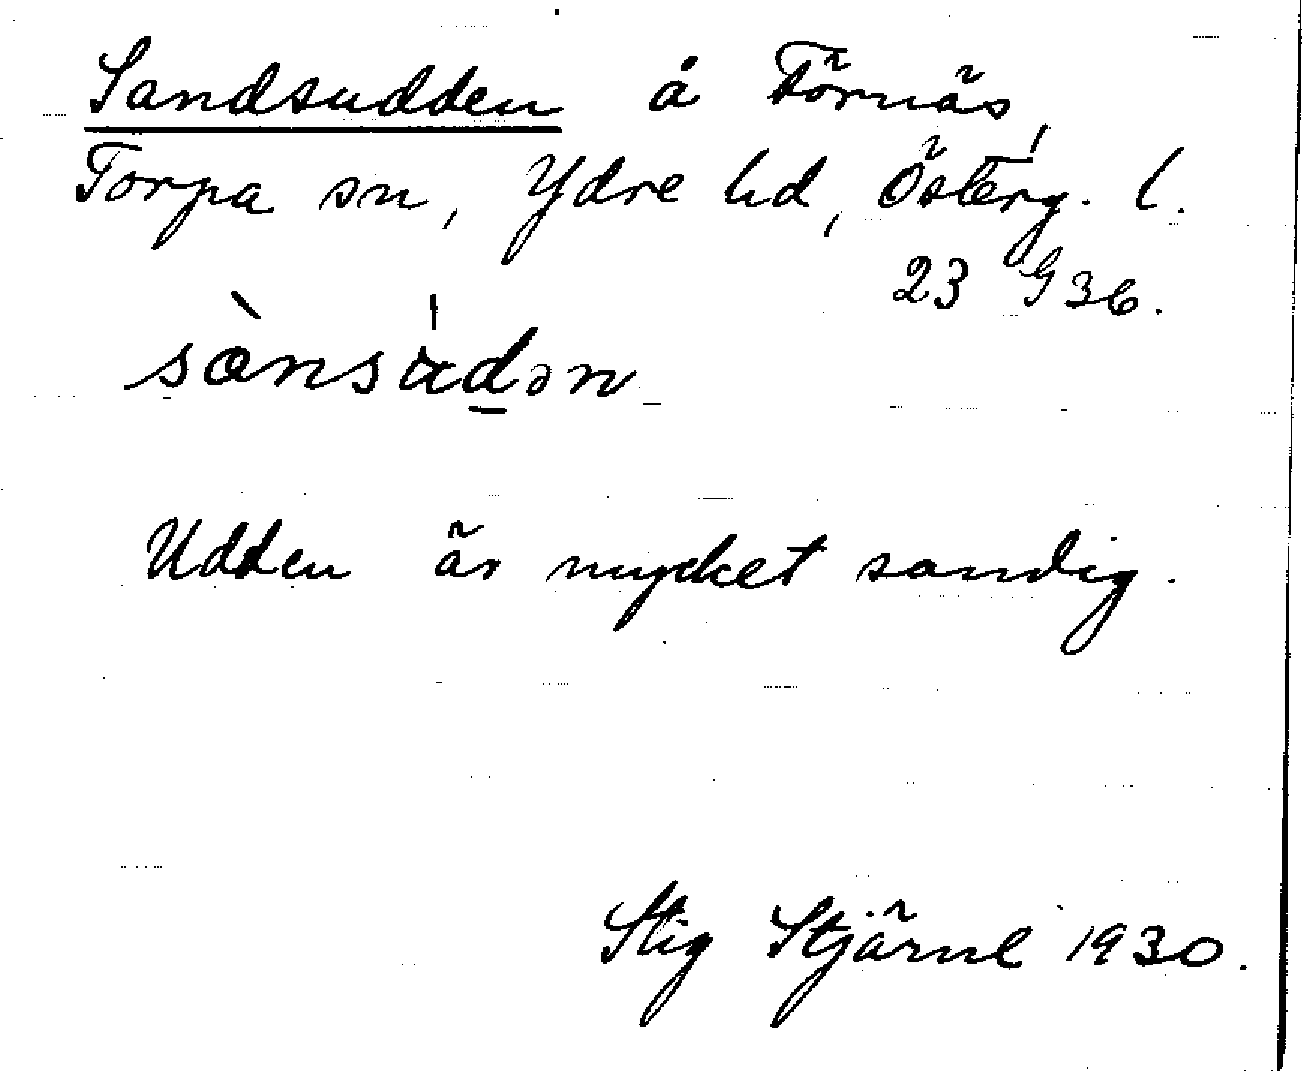 Sandsudden å Förnäs,
Torpa sn, Ydre hd, Österg. l.
23 G 36.
sànsu̍d̠ən
Udden är mycket sandig.
Stig Stjärne 1930.